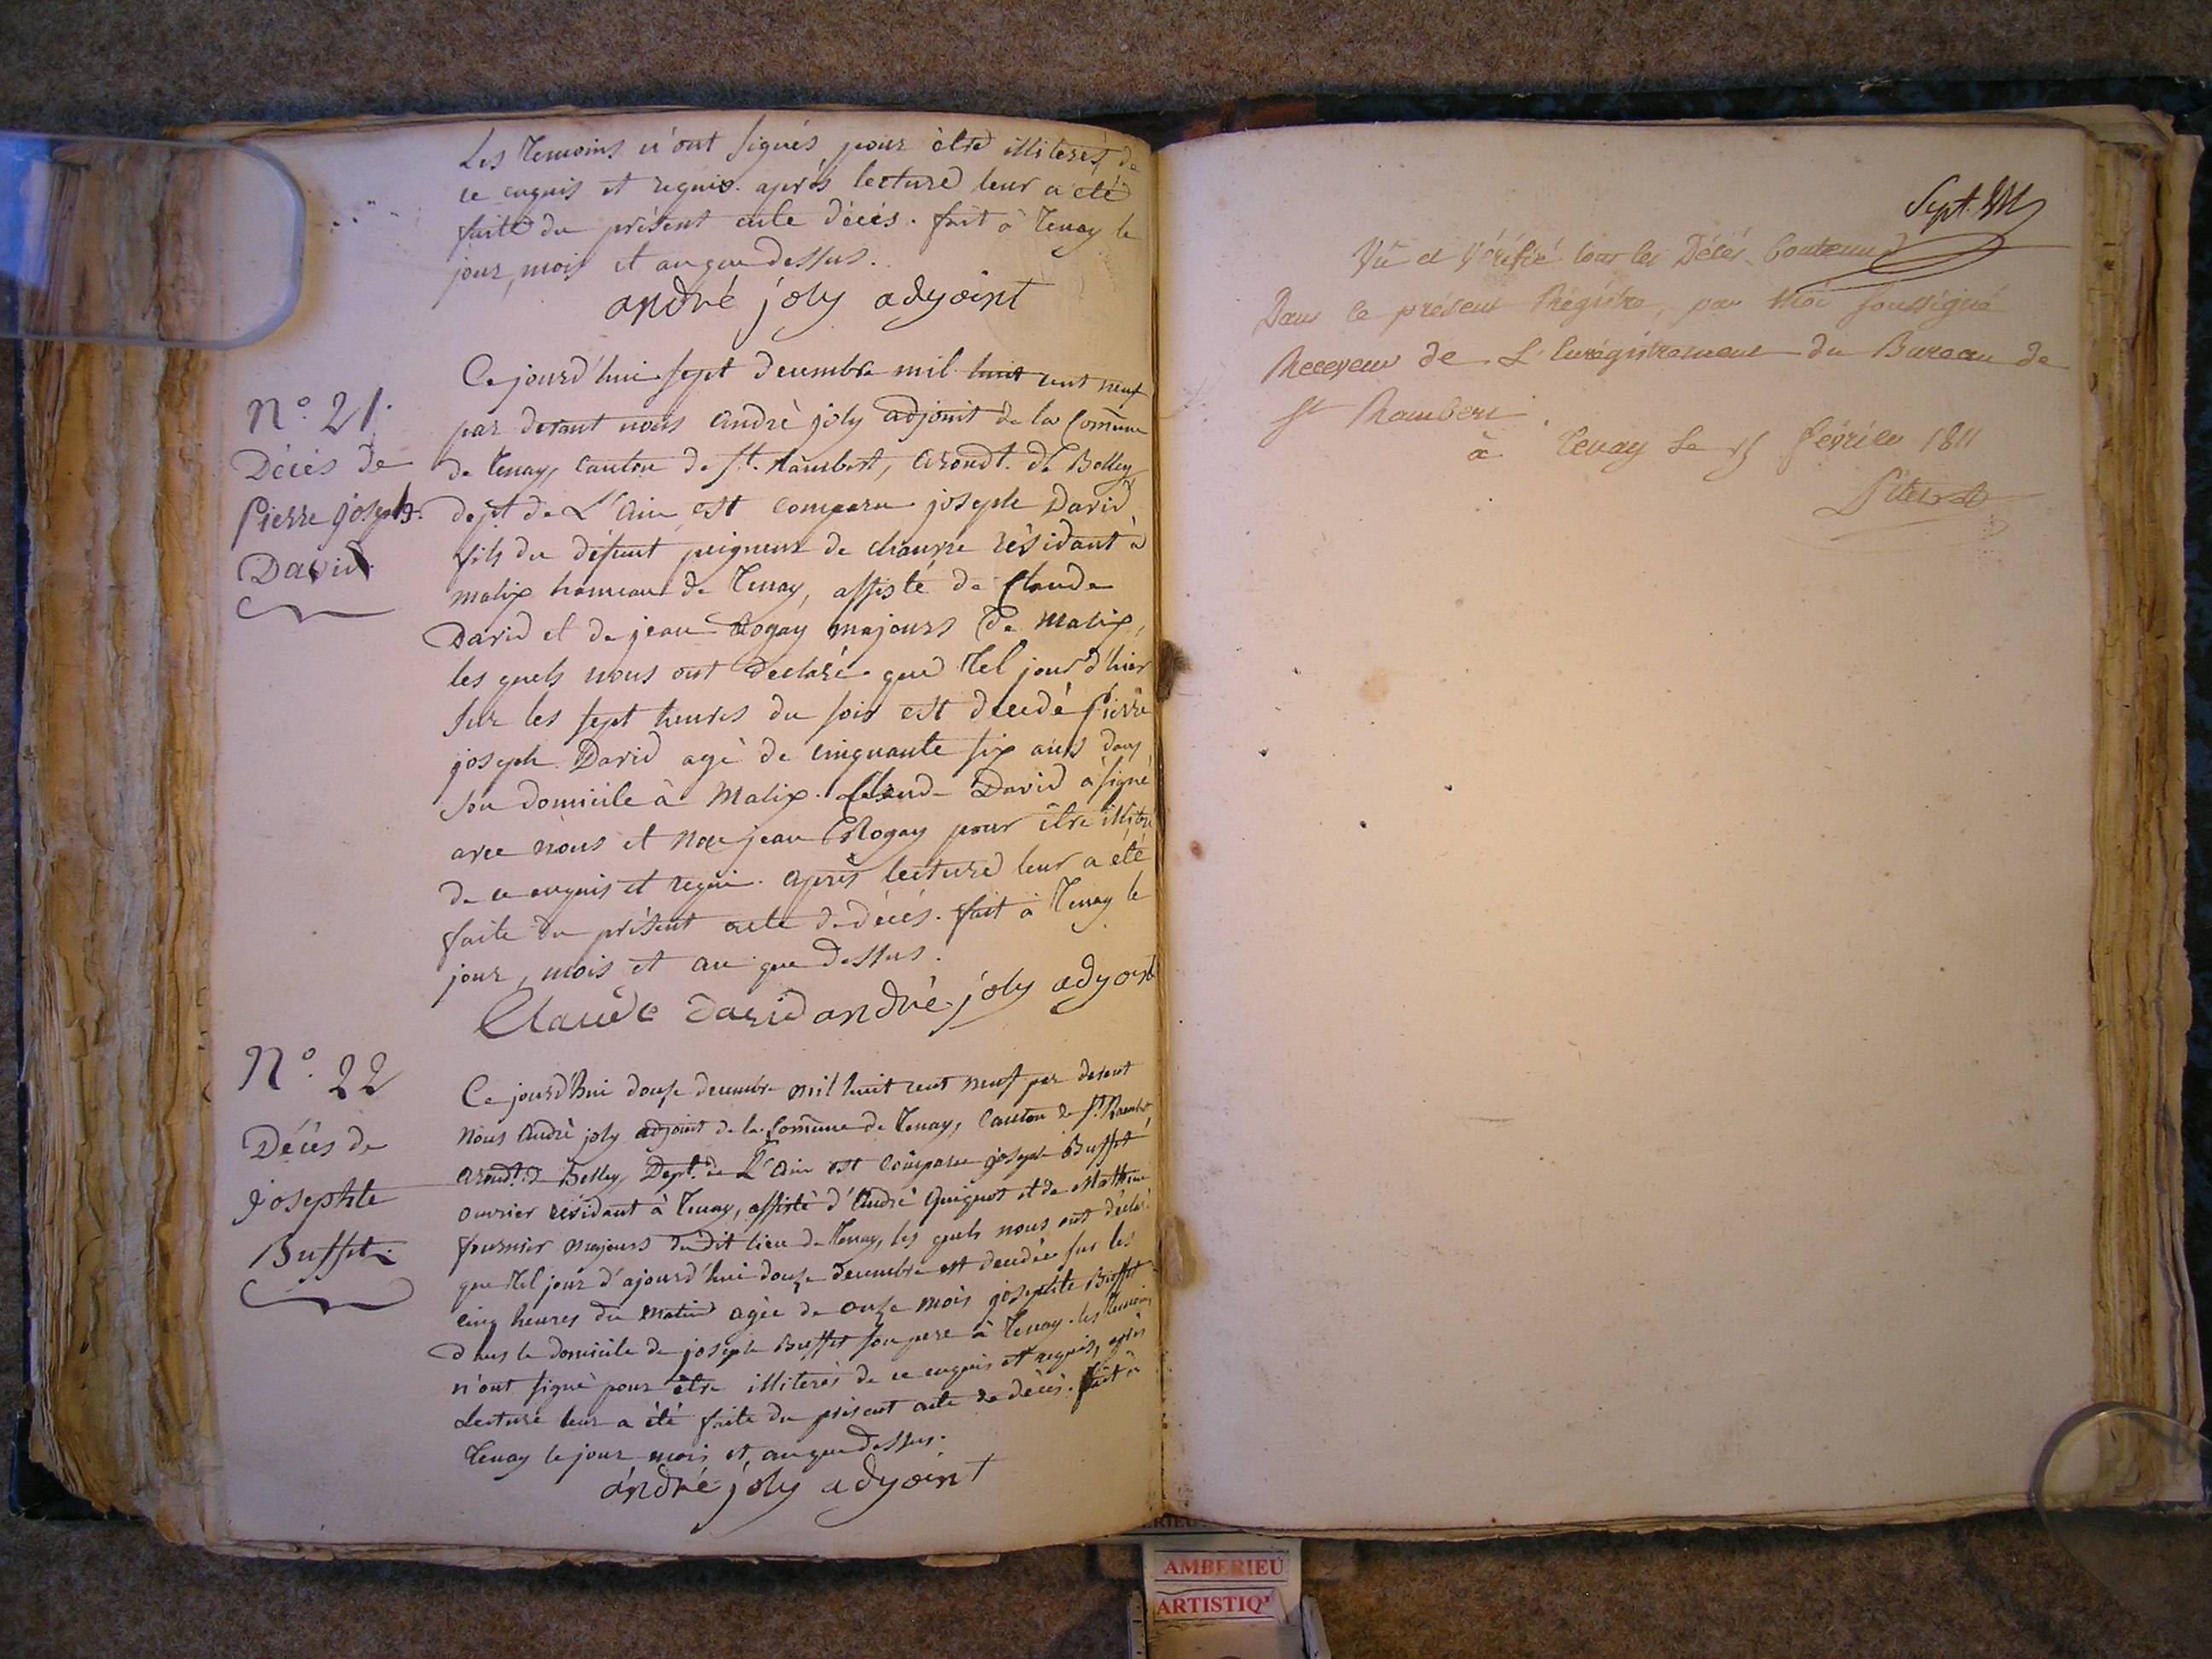 Les temoins n'ont signés pour être illiterés de
ce enquis et requis. après lecture leur a été
faite du présent acte décès. fait à Tenay le
jour, mois et an que dessus.
andré joly adyoint
N° 21.
Décès de
Pierre joseph
David
Ce jourd'hui sept decembre mil huit cent neuf
par devant nous andrè joly adjoint de la Comune
de Tenay, canton de St. Rambert, arondt. de Belley
dept de L'Ain est comparu joseph David
fils du défunt peigneur de chanvre résidant à
malix hameau de Tenay, assisté de Claude
David et de jean Rogay majours de Malix,
les quels nous ont declaré que tel jour d'hier
sur les sept heures du soir est decedé Pierre
joseph David agè de cinquante six ans dans
son domicile à Malix. Claude David à signé
avec nous et non jean Rogay pour être illitére
de ce enquis et requis. après lecture leur a été
faite du présent acte de décés. fait à Tenay le
jour, mois et an que dessus.
Claude david andrè joly adyoint
N° 22
Décès de
josephte
Buffet.
Ce jourd'hui douse decembre mil huit cent neuf par devant
nous andrè joly adjoint de la Comune de Tenay, Canton de St. Rambert,
arondt. de Belley, Dept. de L'Ain est comparu joseph Buffet
ouvrier résidant à Tenay, assisté d'andrè Guignot et de Mathieu
fournier majours dudit lieu de Tenay, les quels nous ont declaré
que tel jour d'ajourd'hui douse decembre est decedée sur les
cinq heures du matin agée de onse mois josephte Buffet
dans le domicile de joseph Buffet son pere à Tenay. les temoins
n'ont signé pour être illiterés de ce enquis et requis, après
Lecture leur a été faite du présent acte de décès. fait à
Tenay le jour mois et an que dessus.
andré joly adyoint
Sept.
Vû et Vérifié tous les Décés Contenus
Dans le présent Régistre, par Moi soussigné
Receveur de L'Enrégistrement du Bureau de
St Rambert
à Tenay le 15 février 1811
AMBERIEU
ARTISTIQ'